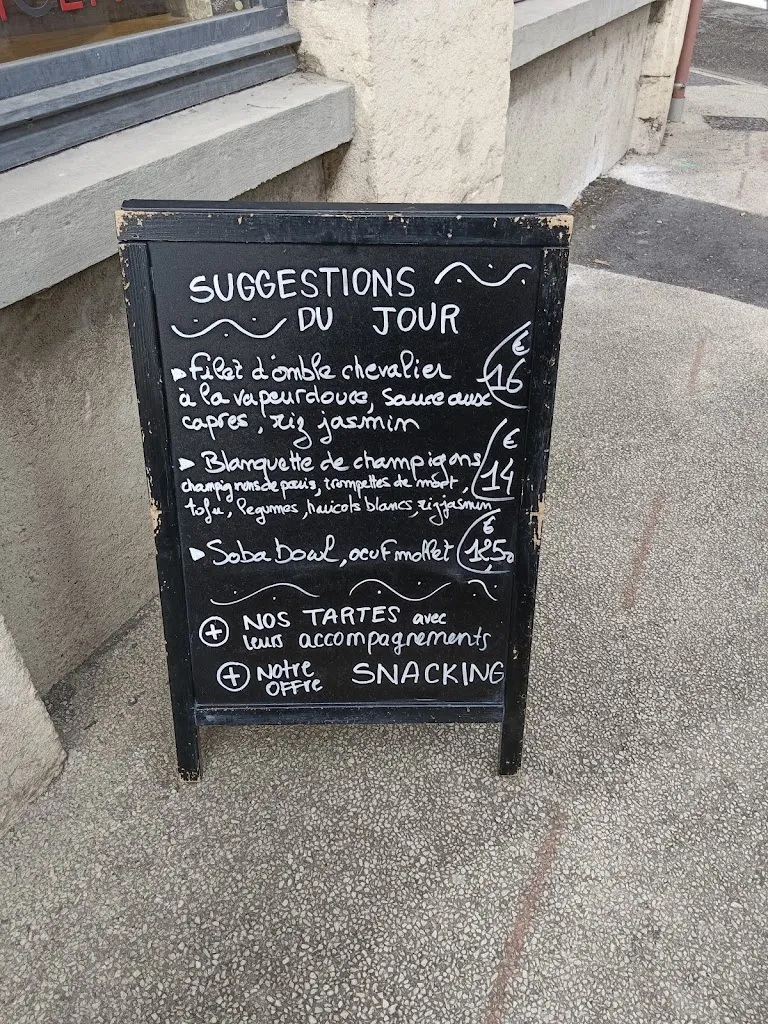 SUGGESTIONS
DU JOUR
Filet d'omble chevalier
€
16
à la vapeur douce, sauce aux
capres, riz jasmin
Blanquette de champignons
€
14
champignons de paris, trompettes de mort,
tofu, legumes, haricots blancs, riz jasmin
Soba bowl, oeuf mollet
€
12,50
+ NOS TARTES avec
leurs accompagnements
+ NOTRE SNACKING
OFFRE